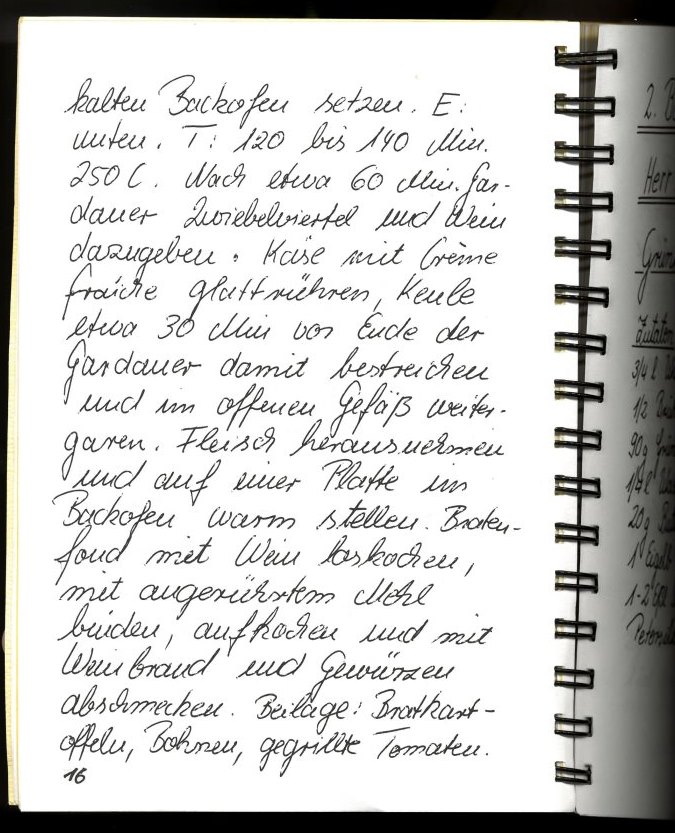 kalten Backofen setzen. E:
unten. T: 120 bis 140 Min.
250 C. Nach etwa 60 Min. Gar-
dauer Zwiebelviertel und Wein
dazugeben. Käse mit Crème
fraîche glattrühren, Keule
etwa 30 Min vor Ende der
Gardauer damit bestreichen
und im offenen Gefäß weiter-
garen. Fleisch herausnehmen
und auf einer Platte im
Backofen warm stellen. Braten-
fond mit Wein loskochen,
mit angerührtem Mehl
binden, aufkochen und mit
Weinbrand und Gewürzen
abschmecken. Beilage: Bratkart-
offeln, Bohnen, gegrillte Tomaten.
16
2.
Herr
Zutaten
3/4 l
1/2
90g
20g
1
1-2